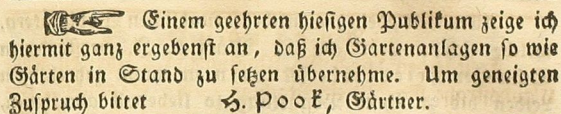 ☞ Einem geehrten hiesigen Publikum zeige ich
hiermit ganz ergebenst an, daß ich Gartenanlagen so wie
Gärten in Stand zu setzen übernehme. Um geneigten
Zuspruch bittet H. Pook, Gärtner.